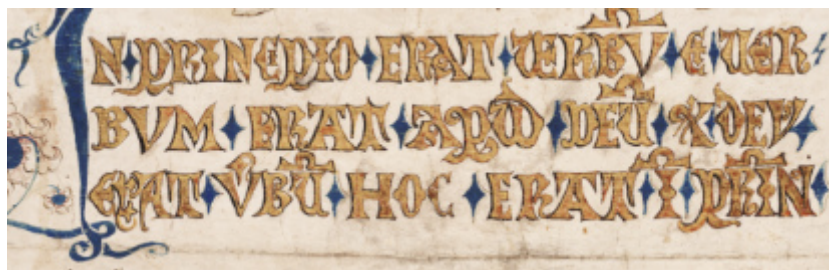 N·PRINCIPIO·ERAT·VERBŪ·E·VER
BVM·ERAT·APVD·DEŪ·&·DEV̄
ERAT·V̄BŪ·HOC·ERAT·Ī·PRĪN